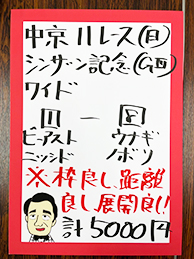 中京11レース(日)
シンザン記念(GⅢ)
ワイド
11 ー
ビーアスト ウナギ
ニッシド ノボリ
※枠良し、距離
良し展開良し!!
計5000円